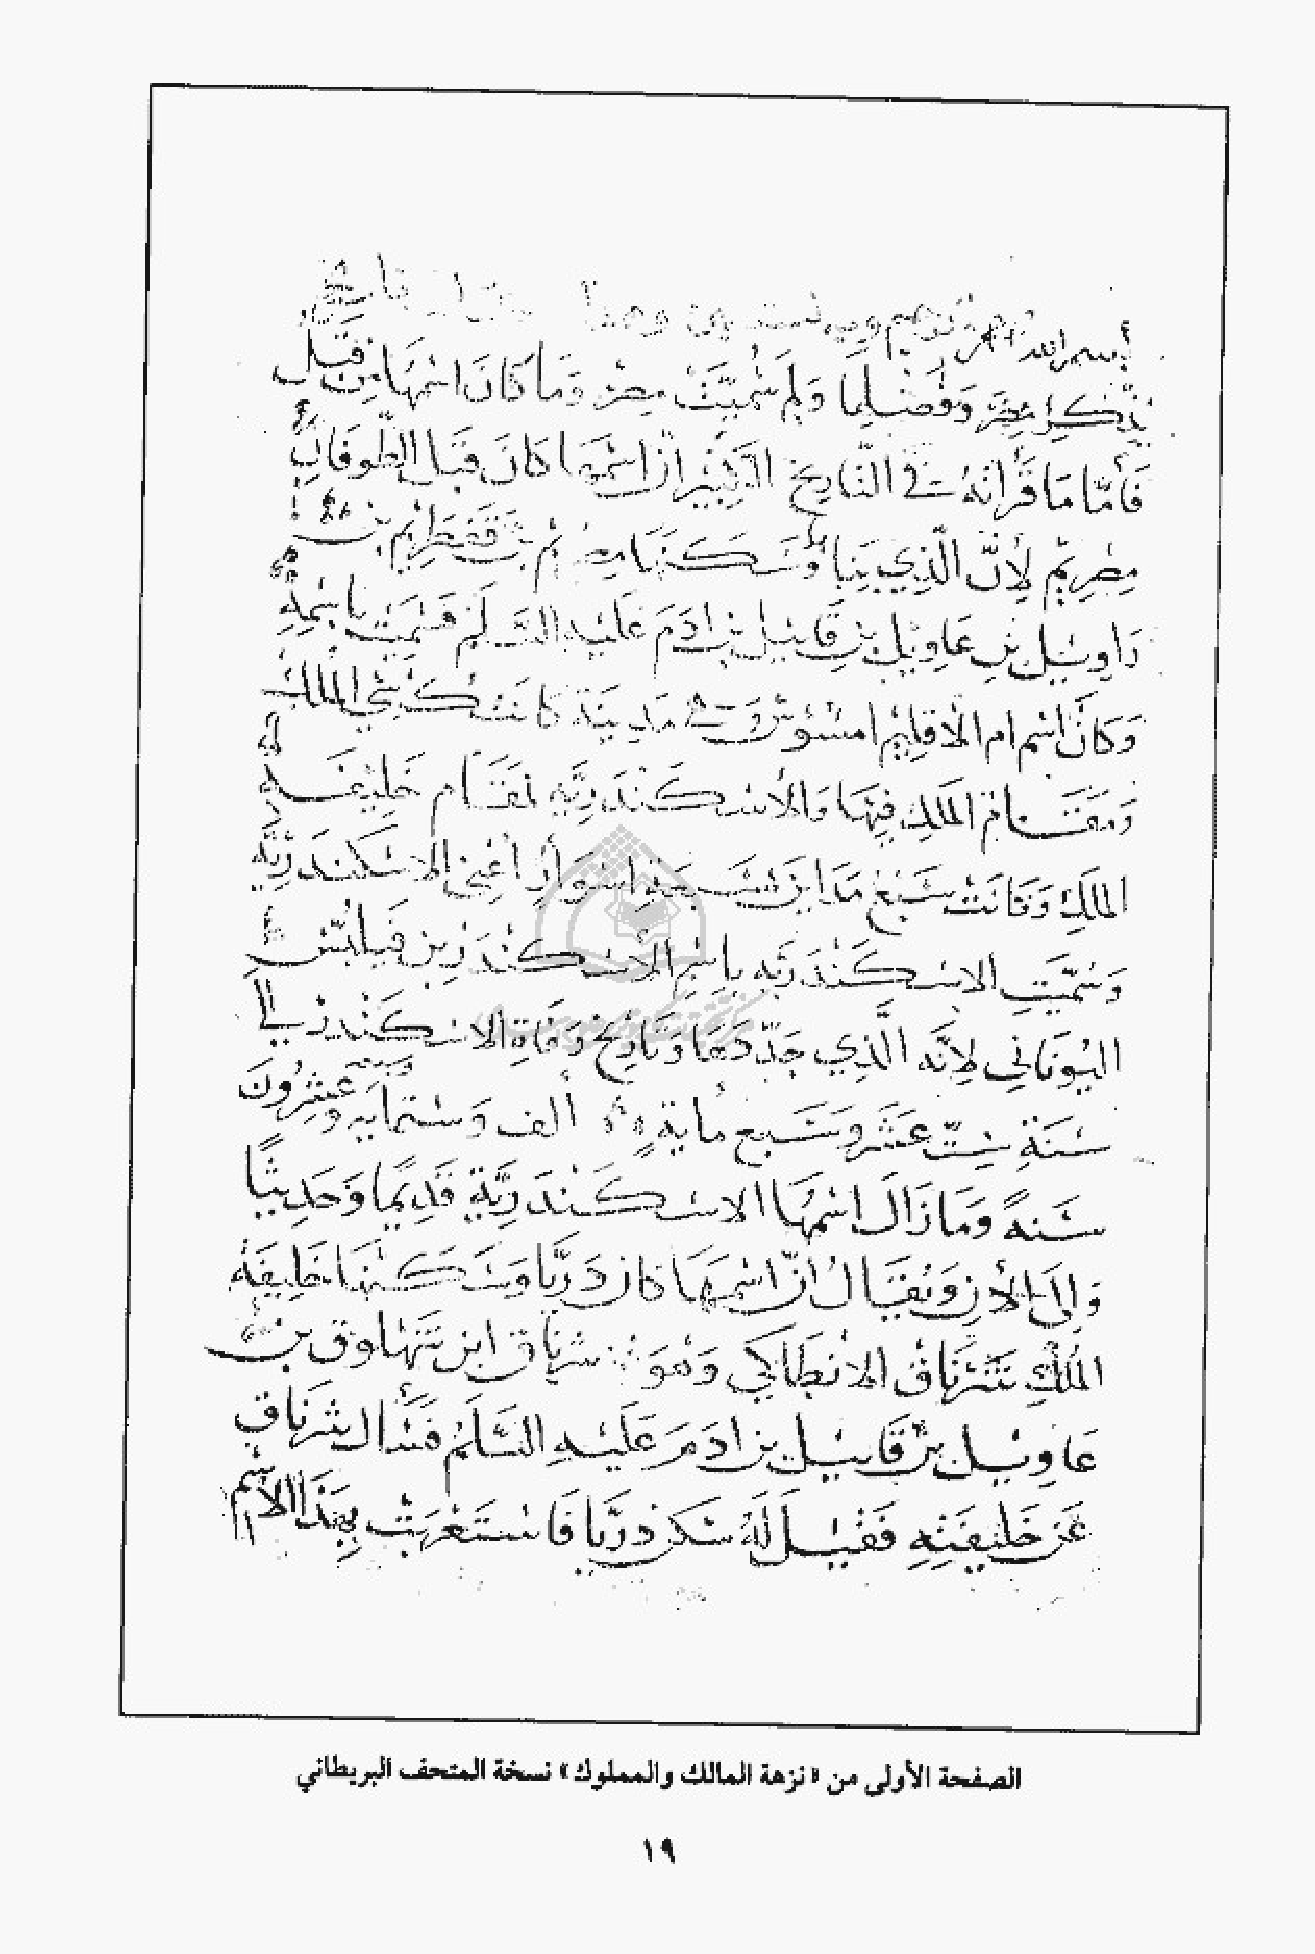 بسم الله الرحمن الرحيم وبه نستعين وهذا تاريخ
يذكر مصر وفضلها ولم سُمِّيَت مصر وَما كانَ اسمهَا من قبل
فأمّا مَا قرأتهُ في التّاريخ الكبير انّ اسمها كانَ قبَل الطّوفان
مصريم لأنّ الّذي بَنَا وَسَكنهَا مصريم بن
بن عَاويل بن قابيل بن ادَمَ عَليه السّلَم فسُميَت باسمِهِ
وَكانَ اسم ام الاقليم امسُوس وَهي مدينَة كانت كرسي الملك
وَمقَام المَلك فيها وَالأسكندريّه مَقَام خَليفَة
الملك وَكانت سَبع مدَاين اسوَار اعني الاسكندَريّه
وَسُمّيَت الاسكندَريّه باسم الاسكندر بن فيلبّس
اليُونَاني لانّه الَّذي جَدّدَهَا وَتاريخ وَفَاة الاسكندر الي
سَنَة ستّ عَشر وَسَبع مايةٍ الف وستمايه وعشرُونَ
سَنةً وَمَا زَالَ اسمُهَا الاسكندَريّة قَديمًا وَحَديثًا
وَالى الأن وَيُقَالُ انّ اسمهَا كان دَريّا وَسَكنهَا خليفَة
المُلك الانطَاكي وَهوَ شرنَاق ابن تنهَاوق بن
عَاويل بن قَابيل بن ادَمَ عَليه السّلَمُ فسَأل شرنَاق
عَن خَليفَته فَقيلَ لَهُ سَكن دريّا فَاستَغربَت بهَذا الاسم
الصفحة الأولى من «نزهة المالك والمملوك» نسخة المتحف البريطاني
١٩